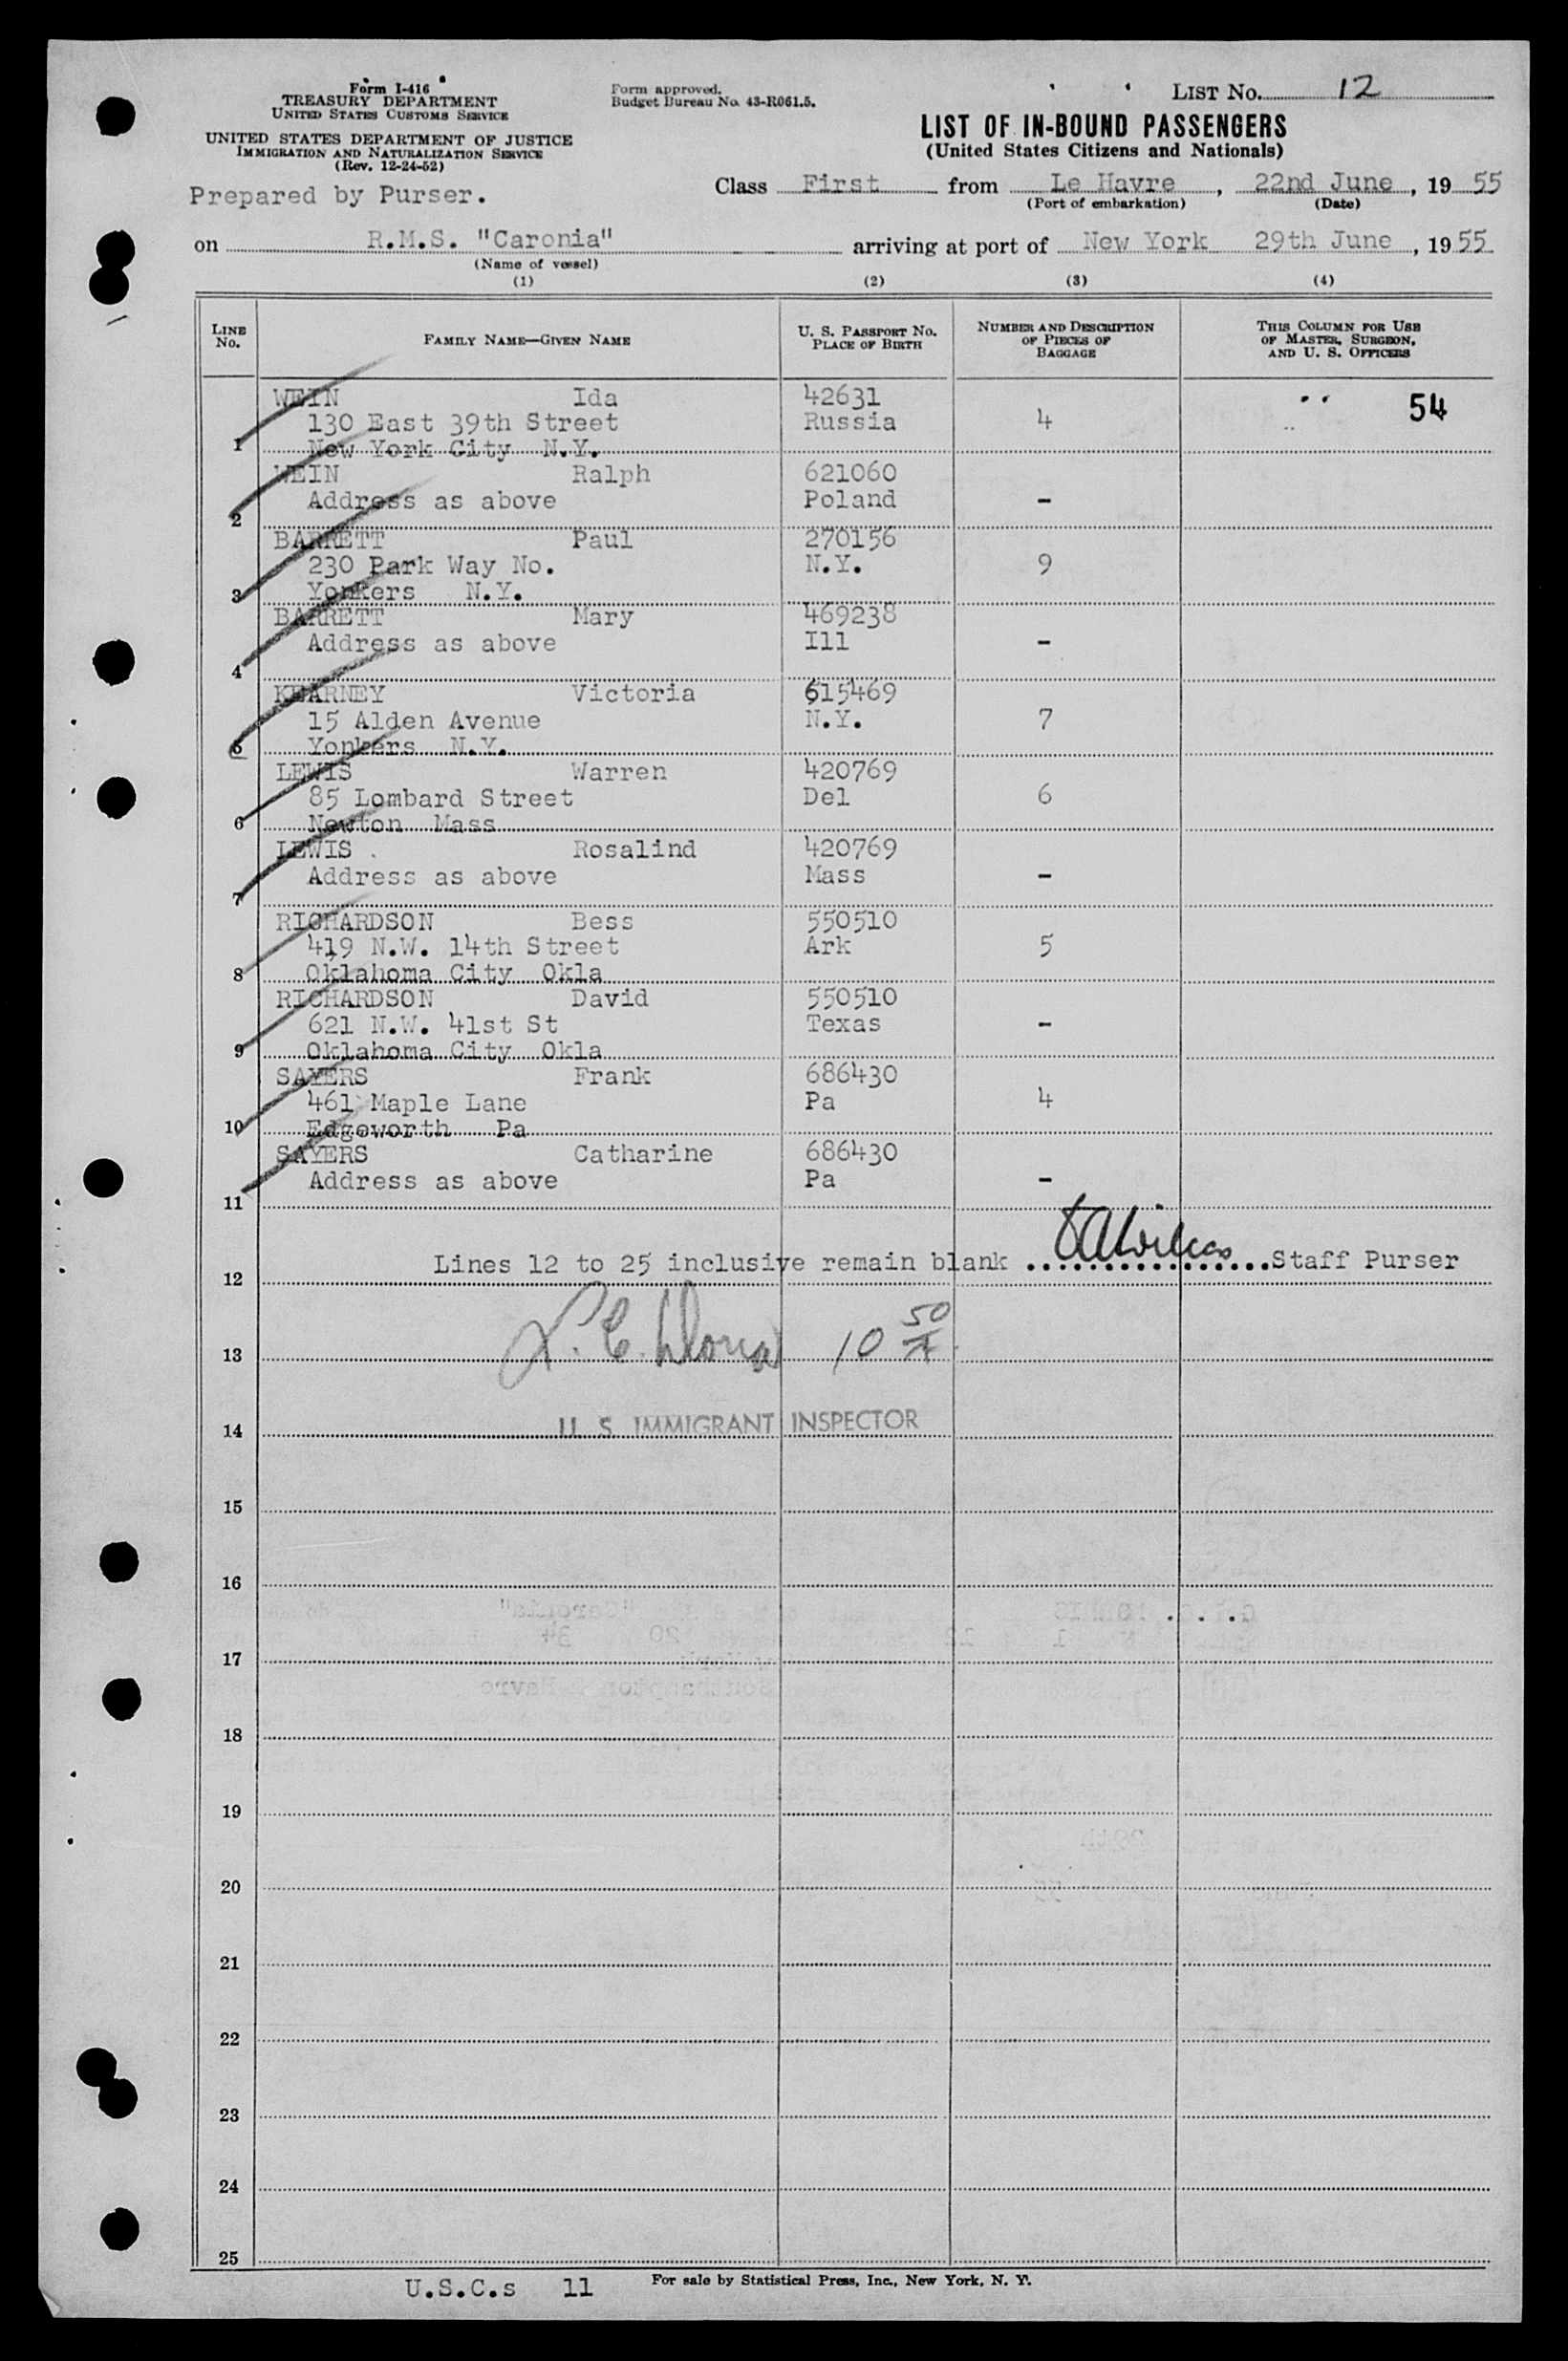 Form I-416
TREASURY DEPARTMENT
UNITED STATES CUSTOMS SERVICE
UNITED STATES DEPARTMENT OF JUSTICE
IMMIGRATION AND NATURALIZATION SERVICE
(Rev. 12-24-52)
Prepared by Purser.
Form approved.
Budget Bureau No. 43-R061.5.
LIST NO. 12
LIST OF IN-BOUND PASSENGERS
(United States Citizens and Nationals)
Class First from Le Havre, 22nd June, 19 55
(Port of embarkation) (Date)
on R.M.S. "Caronia" arriving at port of New York 29th June, 19 55
(Name of vessel)
(1) (2) (3) (4)
LINE No. FAMILY NAME—GIVEN NAME U. S. PASSPORT NO. PLACE OF BIRTH NUMBER AND DESCRIPTION OF PIECES OF BAGGAGE THIS COLUMN FOR USE OF MASTER, SURGEON, AND U. S. OFFICERS
WEIN Ida 42631 54
130 East 39th Street Russia 4
1 New York City N.Y.
WEIN Ralph 621060
Address as above Poland -
2
BARRETT Paul 270156
230 Park Way No. N.Y. 9
3 Yonkers N.Y.
BARRETT Mary 469238
Address as above Ill -
4
KEARNEY Victoria 615469
15 Alden Avenue N.Y. 7
5 Yonkers N.Y.
LEWIS Warren 420769
85 Lombard Street Del 6
6 Newton Mass
LEWIS Rosalind 420769
Address as above Mass -
7
RICHARDSON Bess 550510
419 N.W. 14th Street Ark 5
8 Oklahoma City Okla
RICHARDSON David 550510
621 N.W. 41st St Texas -
9 Oklahoma City Okla
SAYERS Frank 686430
461 Maple Lane Pa 4
10 Edgeworth Pa
SAYERS Catharine 686430
Address as above Pa -
11
Lines 12 to 25 inclusive remain blank ................Staff Purser
12
13 10 50
14 U. S. IMMIGRANT INSPECTOR
15
16
17
18
19
20
21
22
23
24
25
U.S.C.s 11 For sale by Statistical Press, Inc., New York, N. Y.